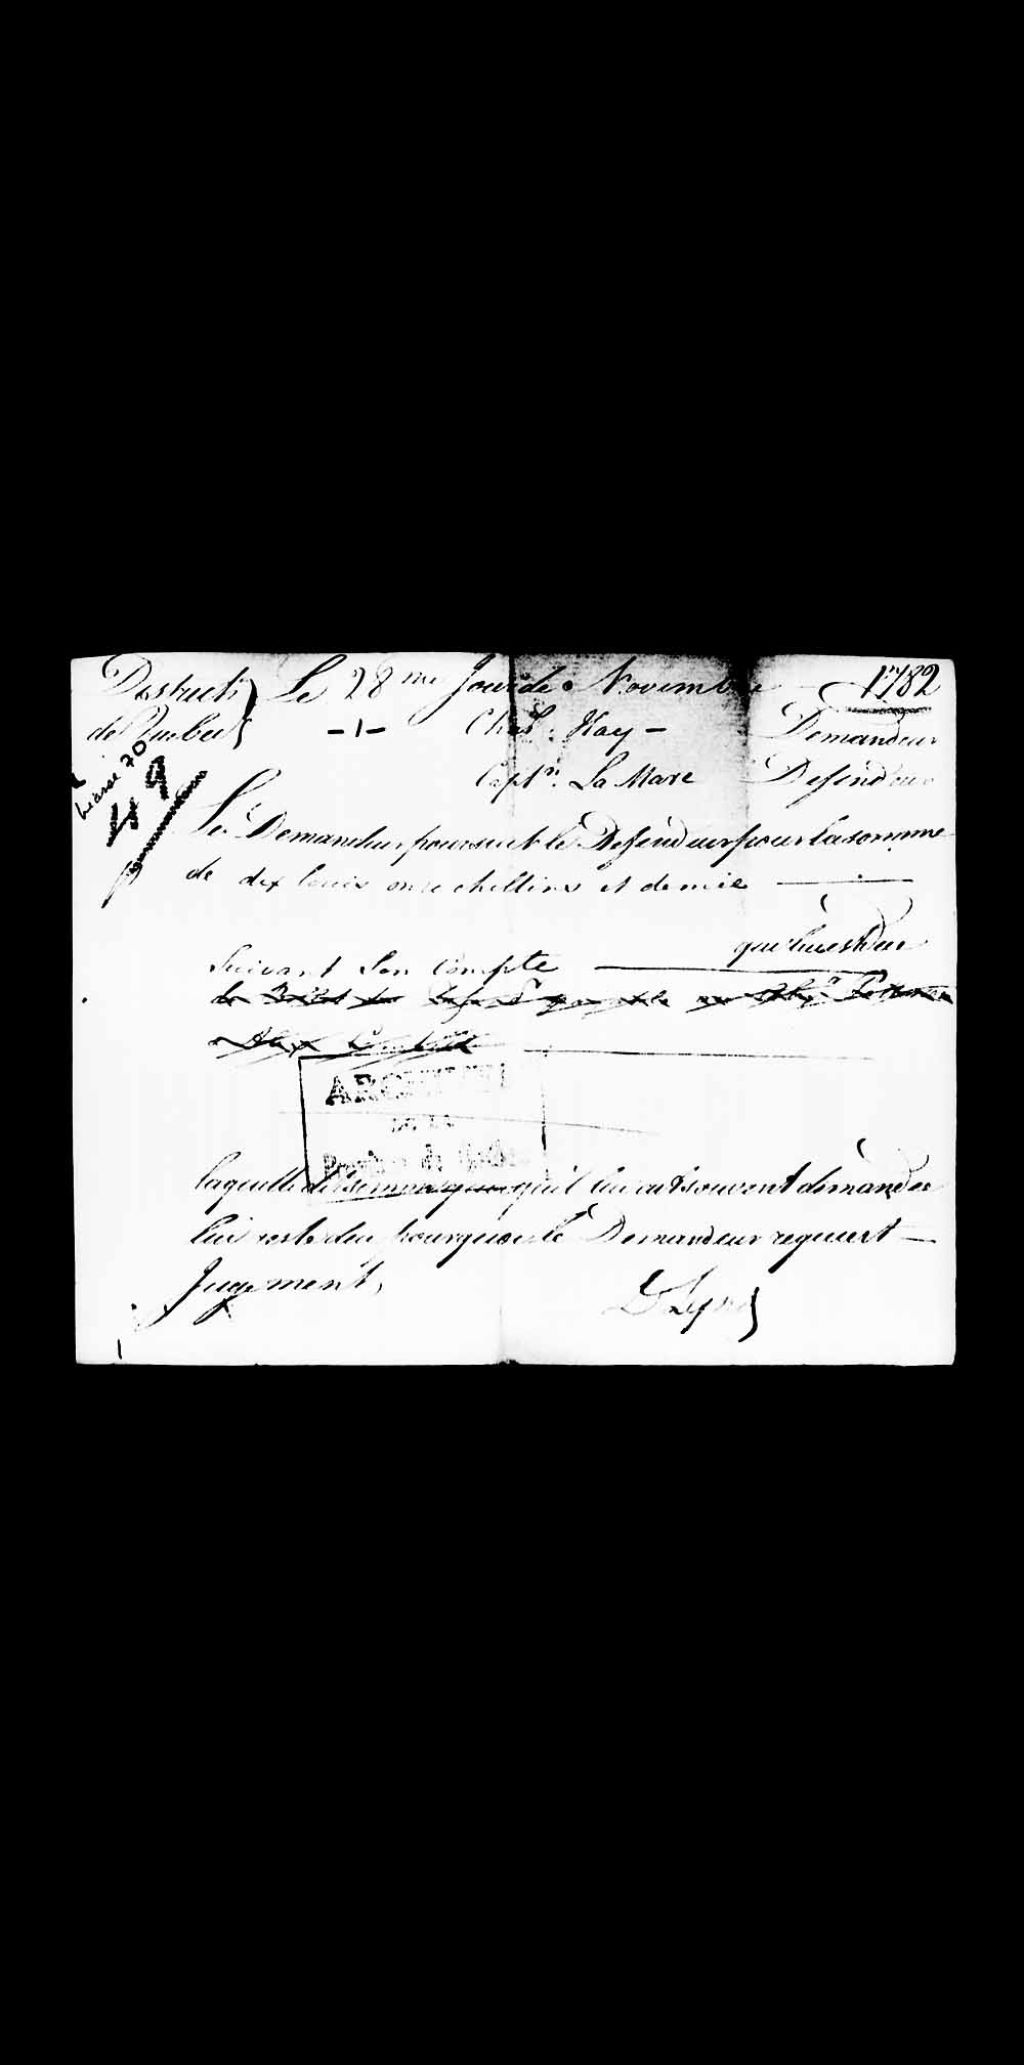 District } Le 28me Jour de Novembre 1782
de Quebec } -1- Chas. Hay - Demandeur
Liasse 70
49
Captn. La Mare Defendeur
Le Demandeur poursuit le Defendeur pour la somme
de dix louis onze chellins et demie
que lui est due
Suivant Son Compte
ARCHIVES
DE LA
Province de Québec
laquelle dite somme quoiqu'il lui ait souvent demandée
lui reste due pourquoi le Demandeur requiert
Jugement,